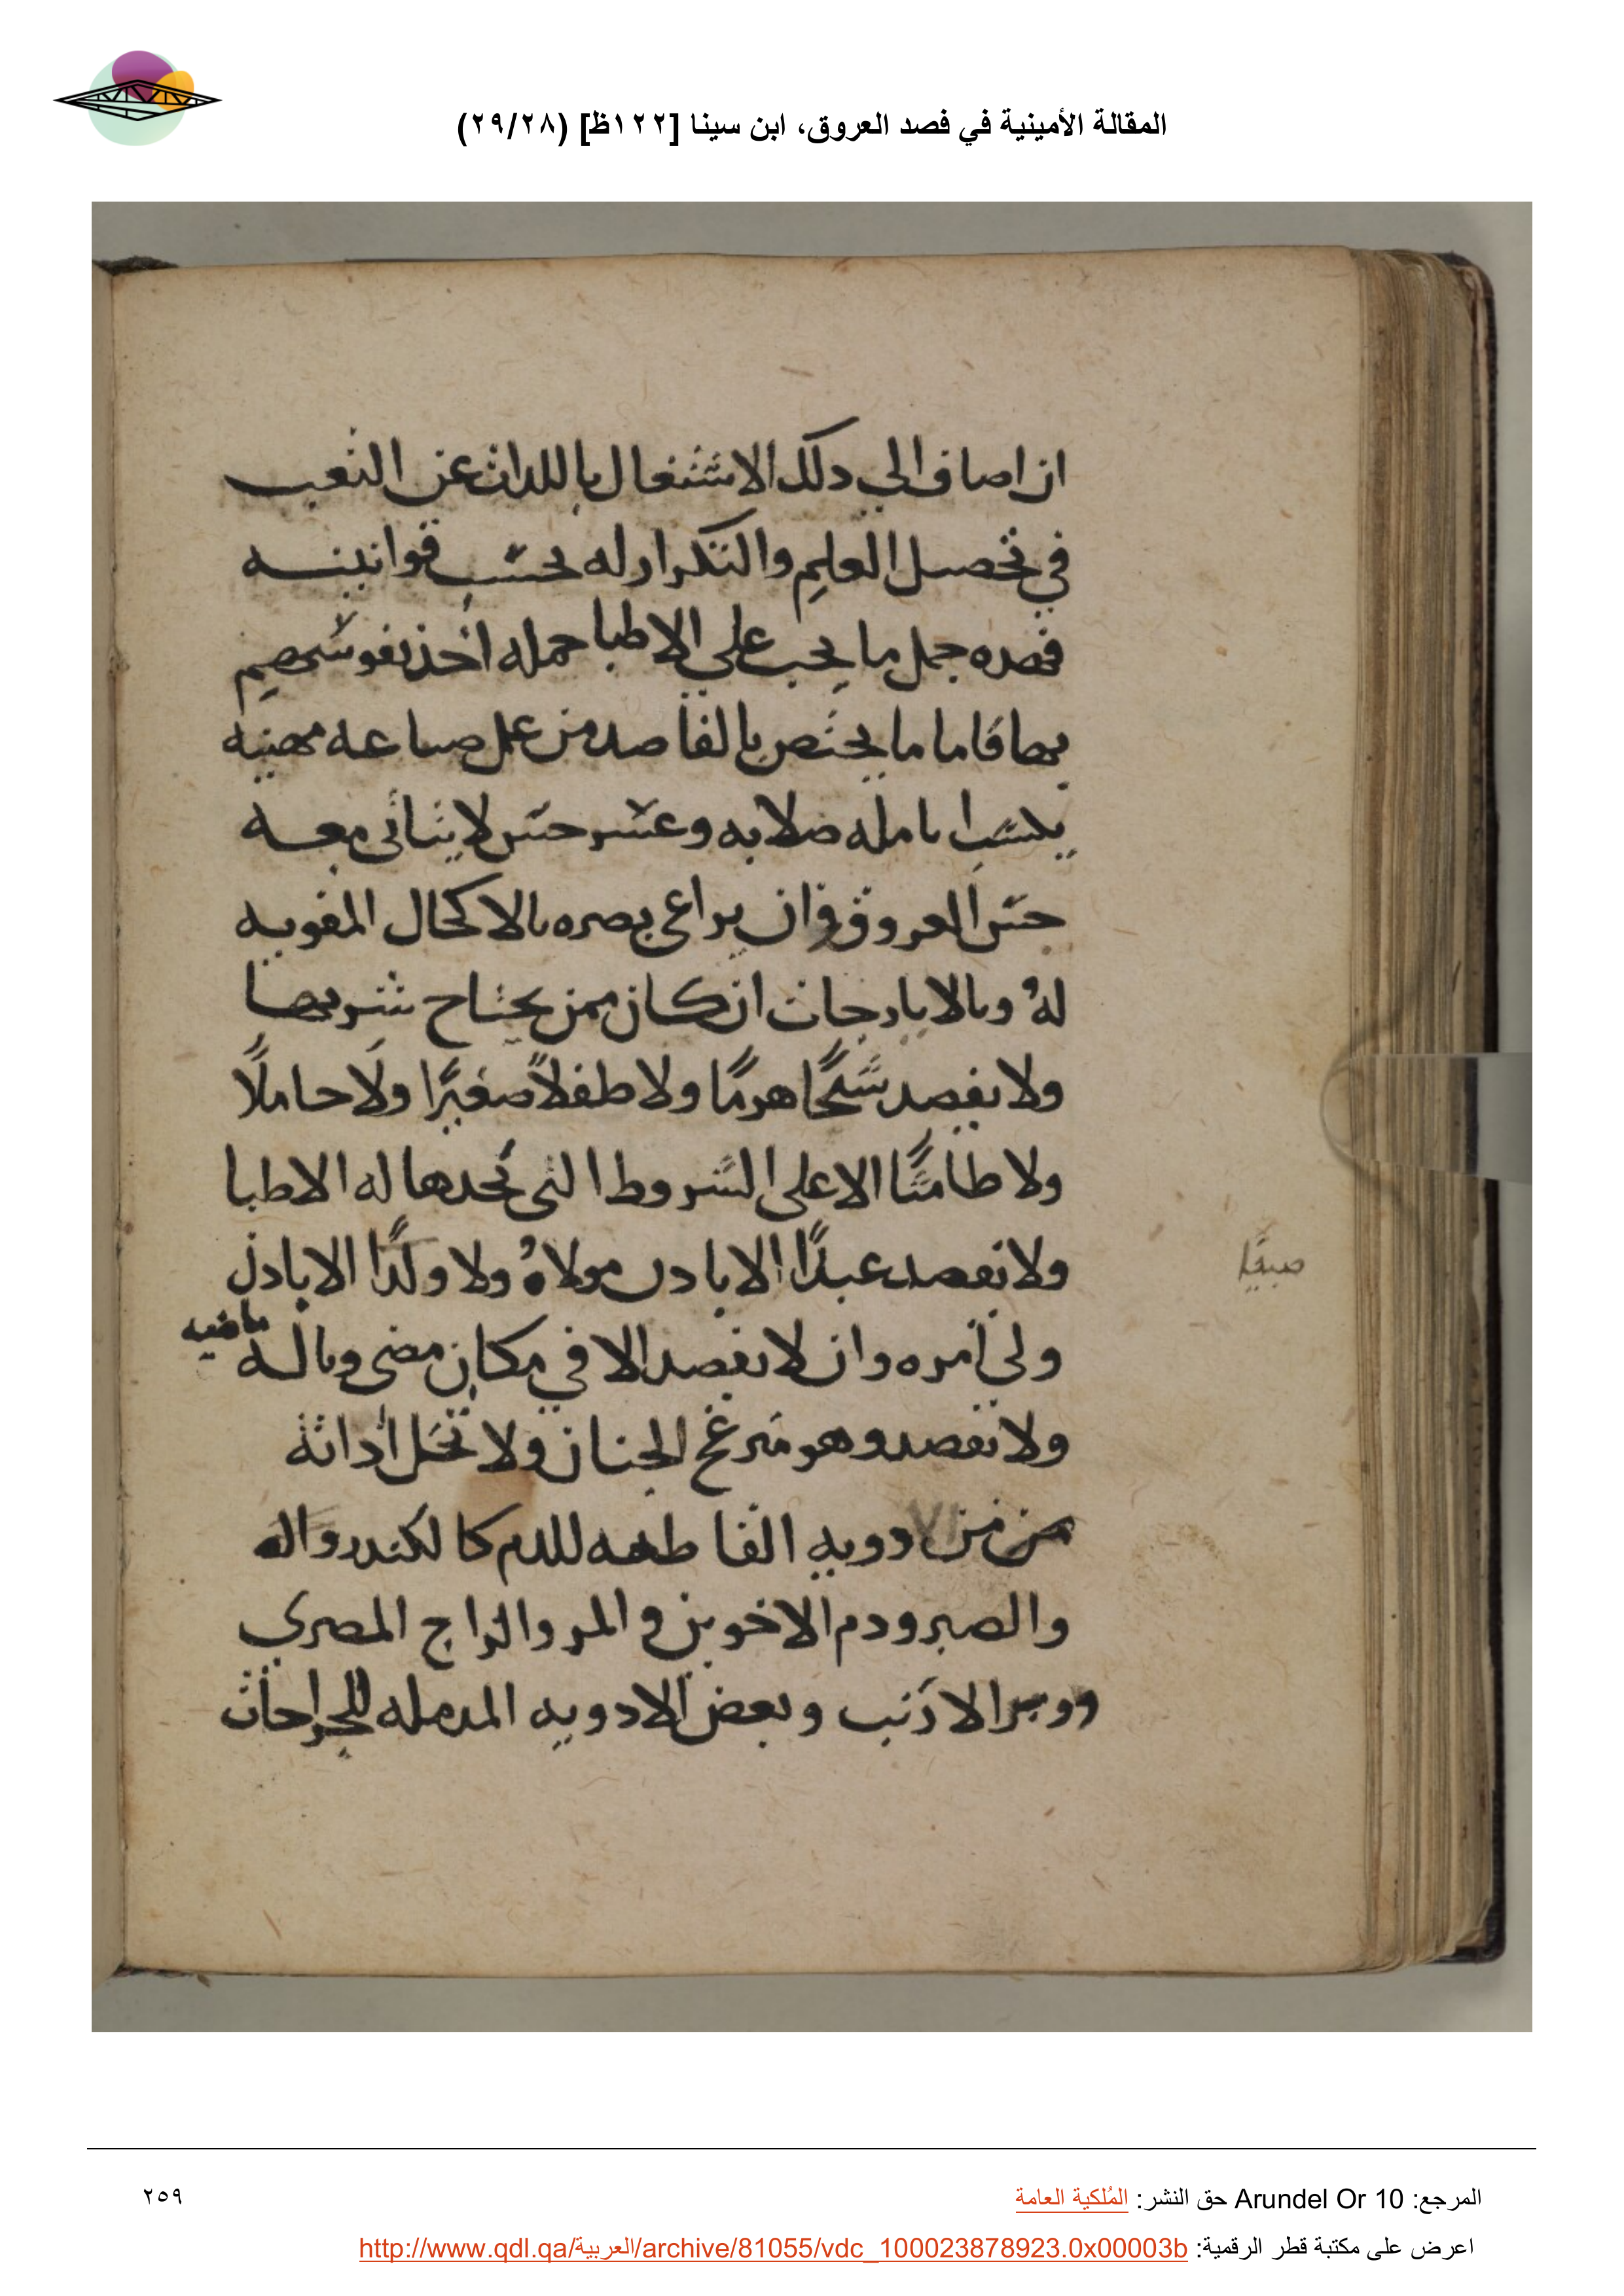 المقالة الأمينية في فصد العروق، ابن سينا [١٢٢ظ] (٢٩/٢٨)
ان اضاف الي ذلك الاشتغال باللذات عن التعب
في تحصيل العلم والتكرار له بحسب قوانينه
فهذه جمل ما يجب علي الاطبا جمله اخذ نفوسهم
بها فاما ما يختص بالفاصد من عمل صناعه مهنيه
يكسب انامله صلابه وعسر حس لا يتاتى معه
حس العروق وان يراعى بصره بالاكحال المقويه
له وبالايارجات ان كان ممن يحتاج شربها
ولا يفصد شيخًا هرمًا ولا طفلًا صغيرًا ولا حاملًا
ولا طامثًا الا على الشروط التى تحدها له الاطبا
ولا يفصد عبدًا الا باذن مولاهُ ولا ولدًا الا باذن
صبيًا
ولى امره وان لا يفصد الا في مكان مضى وبالة
ماضيه
ولا يفصد وهو الجنان ولا تخل اداتة
من دوويه القاطعه للدم كالكندر
والصبر ودم الاخوين والمر والزاج المصري
ووبر الارنب وبعض الادويه المدمله للجراحات
المرجع: Arundel Or 10 حق النشر: المُلكية العامة
٢٥٩
اعرض على مكتبة قطر الرقمية: http://www.qdl.qa/العربية/archive/81055/vdc_100023878923.0x00003b